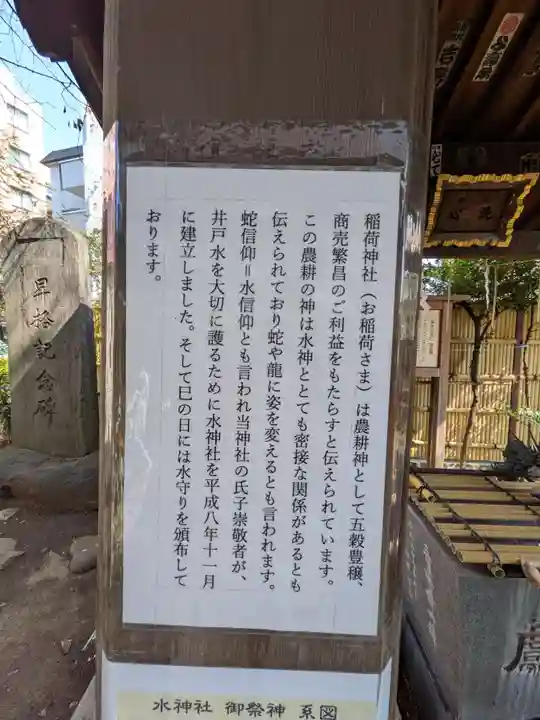 稲荷神社（お稲荷さま）は農耕神として五穀豊穣、
商売繁昌のご利益をもたらすと伝えられています。
この農耕の神は水神ととても密接な関係があるとも
伝えられており蛇や龍に姿を変えるとも言われます。
蛇信仰＝水信仰とも言われ当神社の氏子崇敬者が、
井戸水を大切に護るために水神社を平成八年十一月
に建立しました。そして巳の日には水守りを頒布して
おります。
水神社 御祭神 系図
昇格記念碑